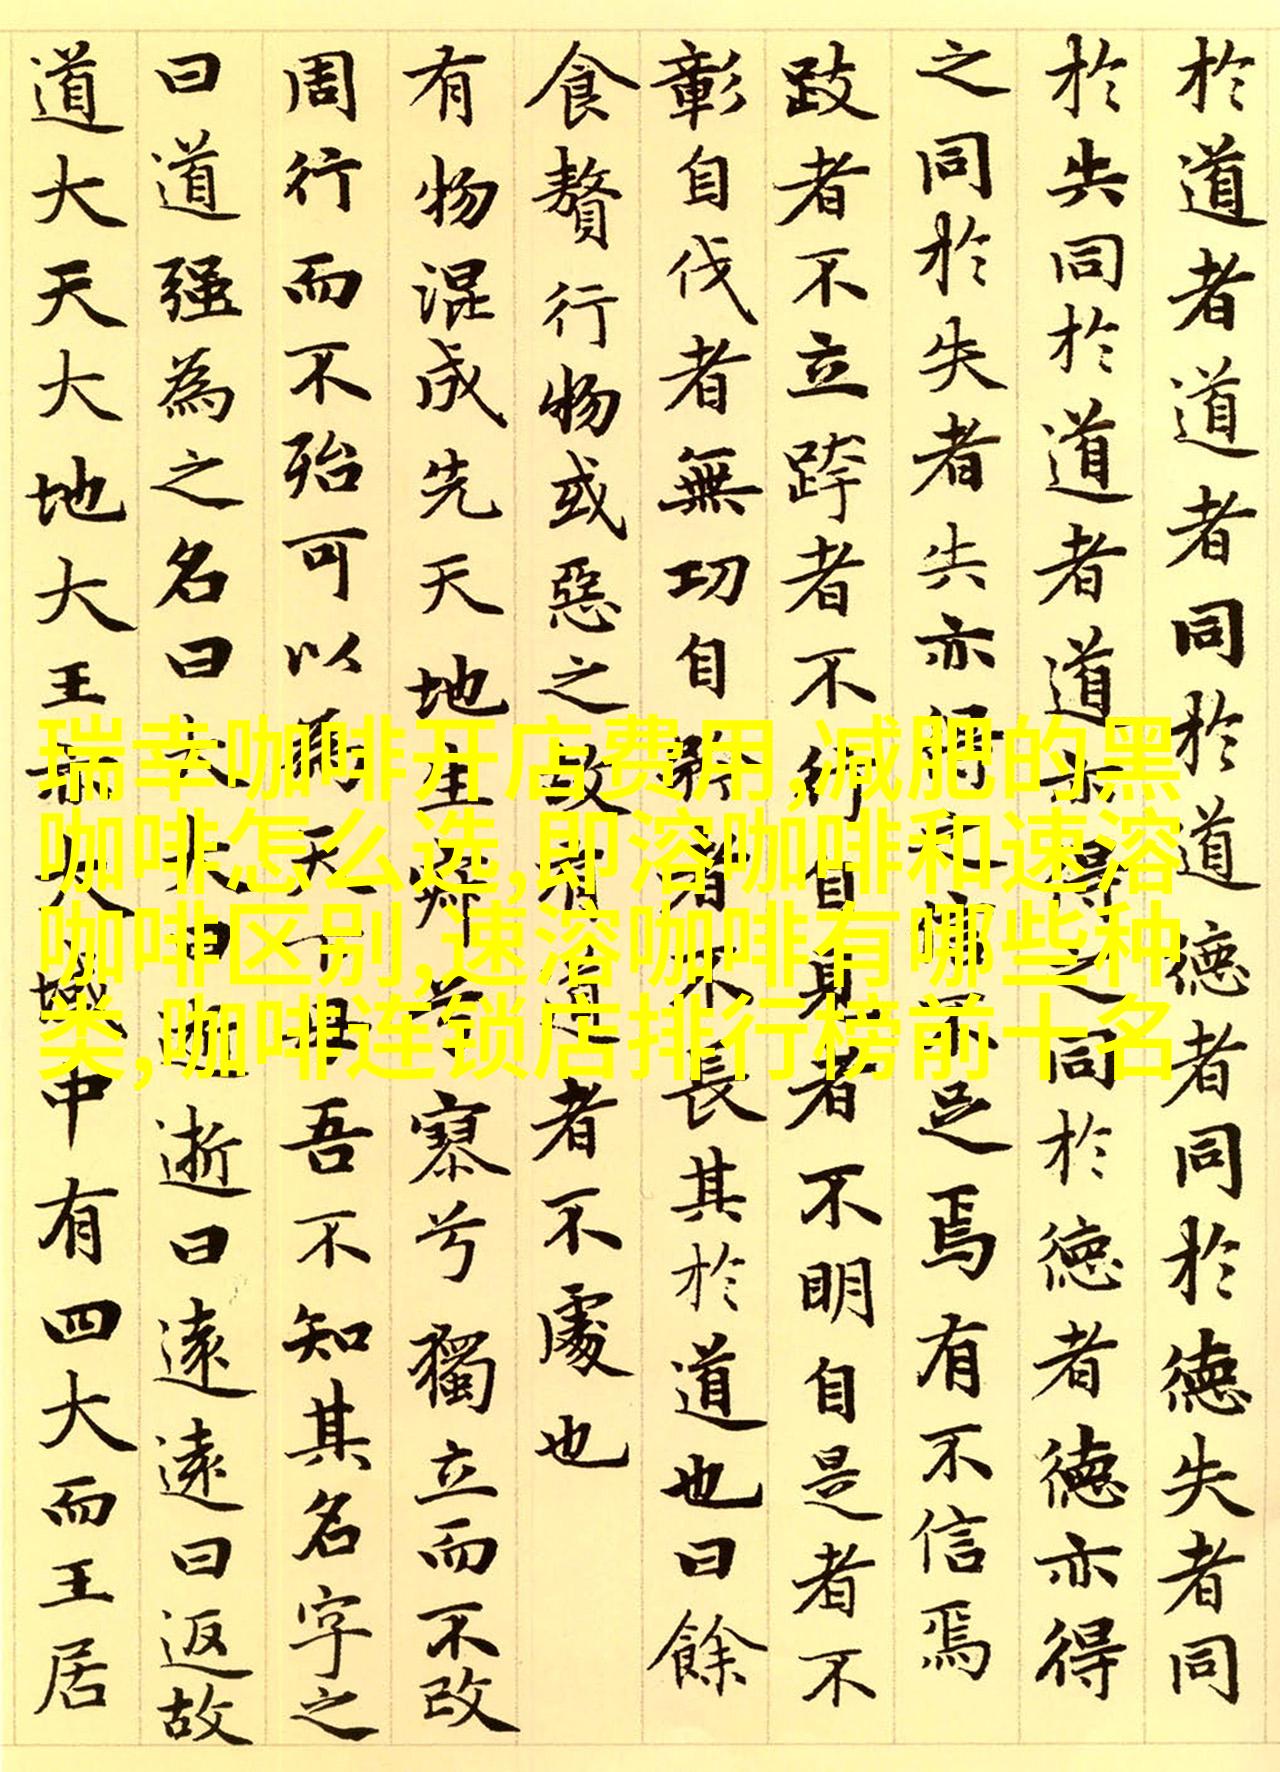 於道者道者同於道德者同於德失者同
於失同於道者道亦得之同於德者德亦得
之同於失者失亦得之信不足焉有不信焉
跂者不立跨者不行自見者不明自是者不
彰自伐者無功自矜者不長其於道也曰餘
食贅行物或惡之故有道者不處也
有物混成先天地生寂兮寥兮獨立而不改
周行而不殆可以為天下母吾不知其名字之
曰道强為之名曰大大曰逝逝曰遠遠曰返故
道大天大地大王亦大域中有四大而王居
瑞幸咖啡开店费用,减肥的黑
咖啡怎么选,即溶咖啡和速溶
咖啡区别,速溶咖啡有哪些种
类,咖啡连锁店排行榜前十名